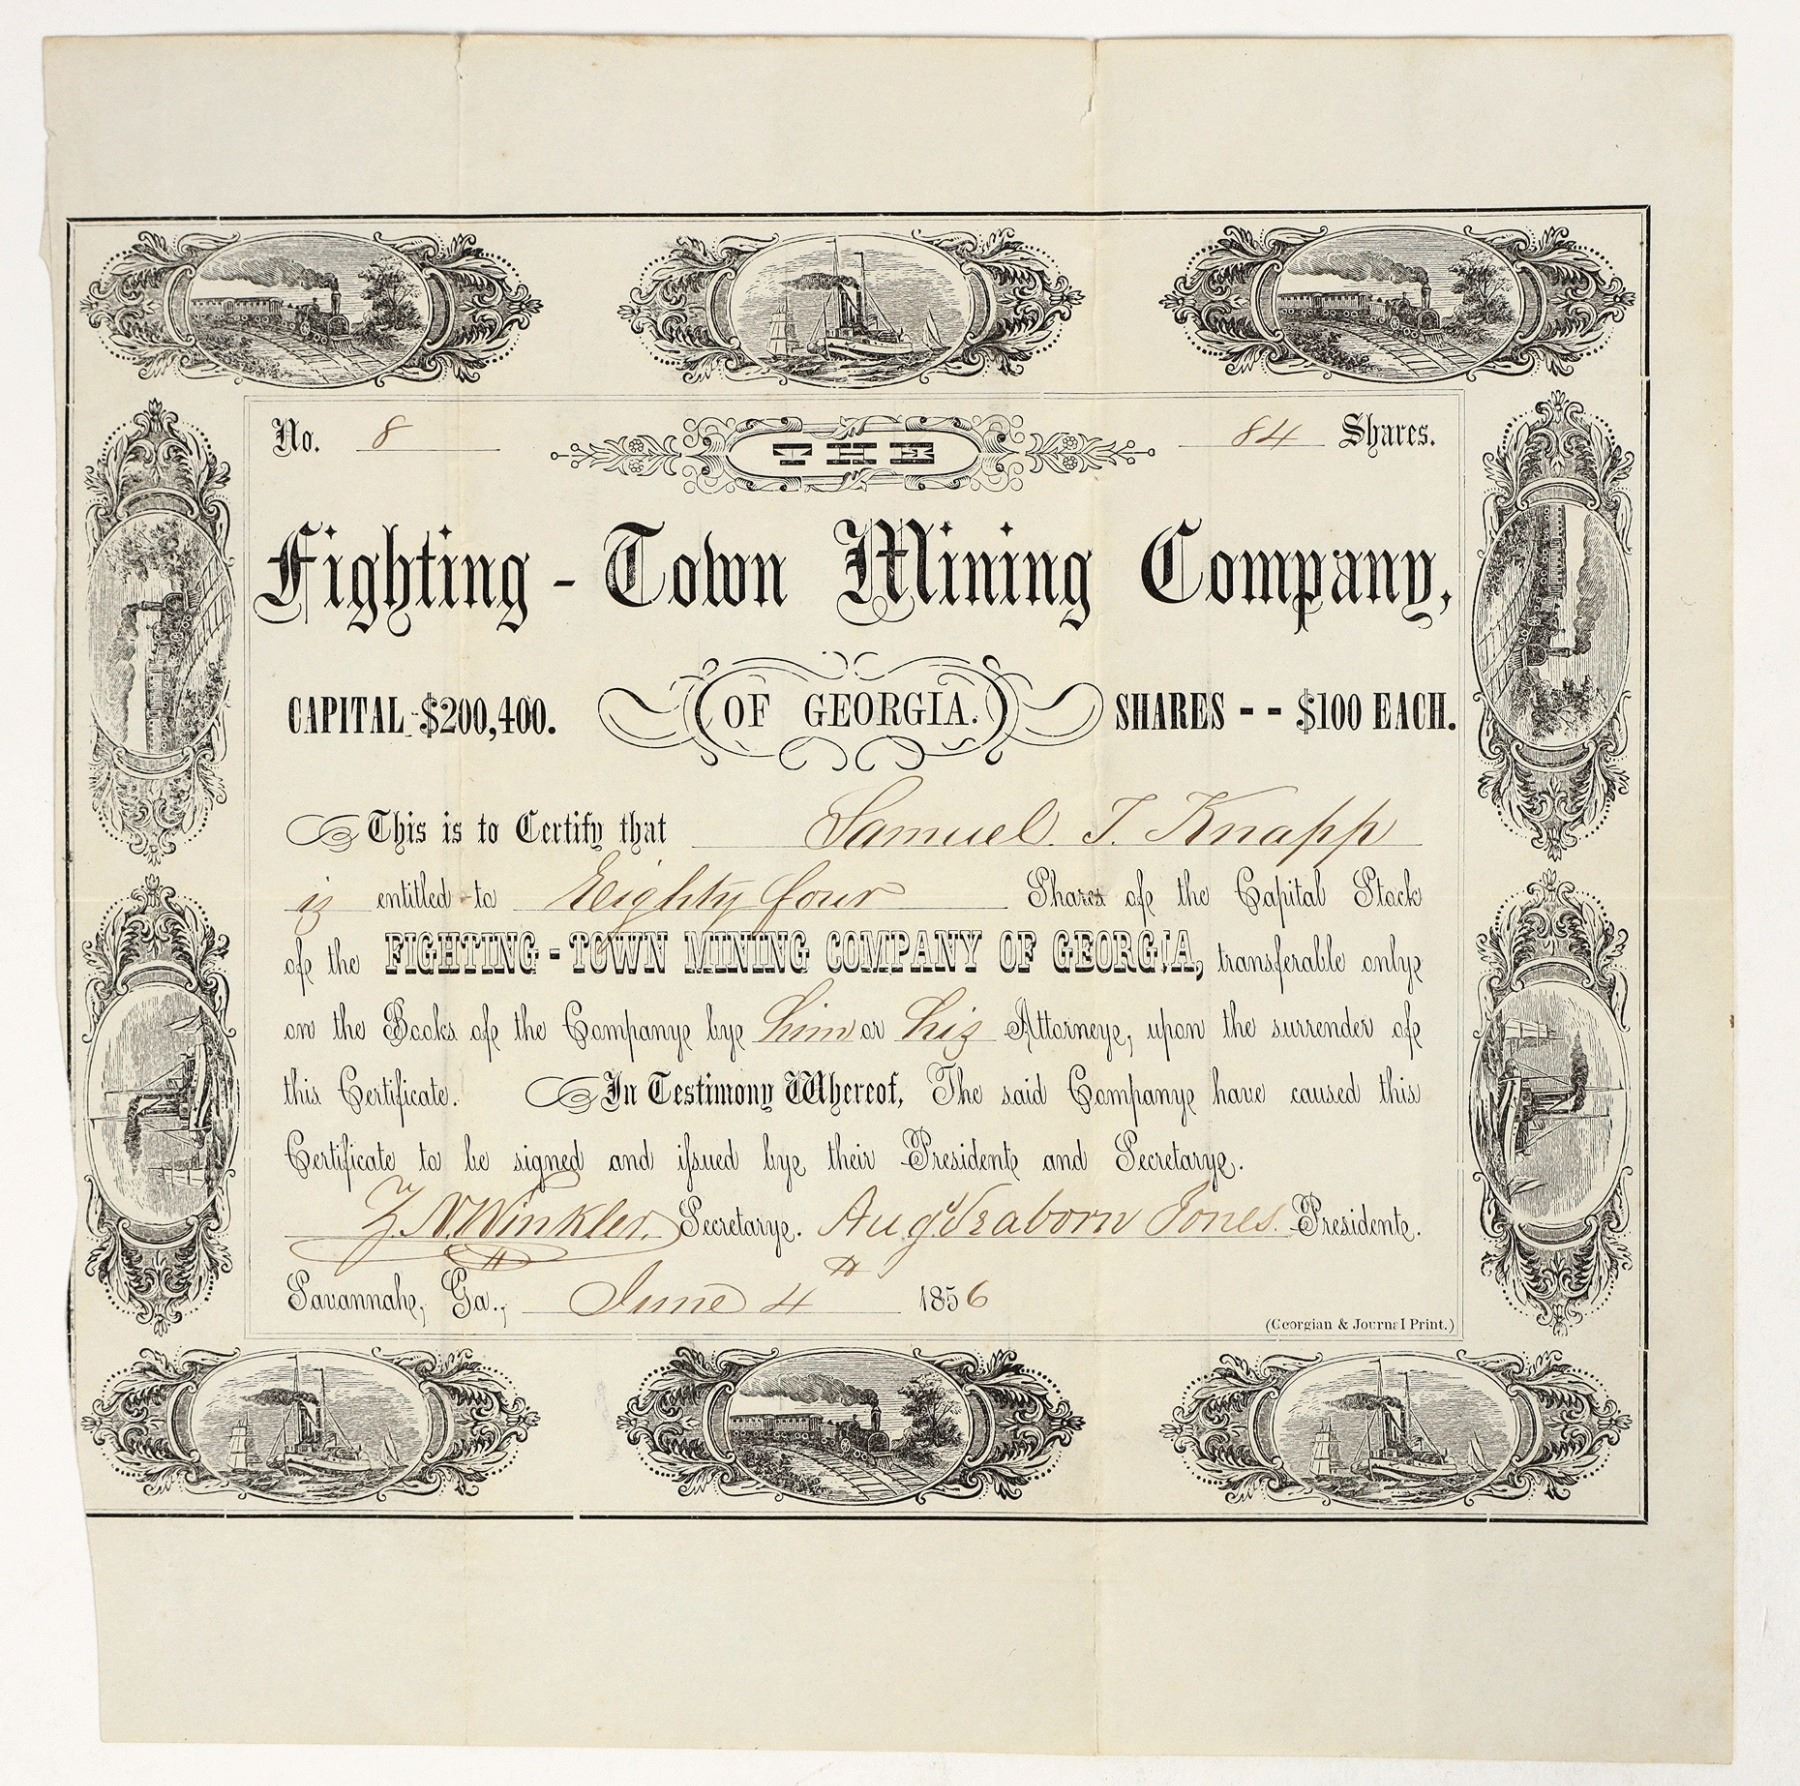 No. 8 THE 84 Shares.
Fighting-Town Mining Company,
CAPITAL $200,400. OF GEORGIA. SHARES -- $100 EACH.
This is to Certify that Samuel T. Knapp
is entitled to Eighty four Shares of the Capital Stock
of the FIGHTING-TOWN MINING COMPANY OF GEORGIA, transferable only
on the Books of the Company by him or his Attorney, upon the surrender of
this Certificate. In Testimony Whereof, The said Company have caused this
Certificate to be signed and issued by their President and Secretary.
Z. N. Winkler, Secretary. Aug. Seaborn Jones President.
Savannah, Ga., June 4th 1856
(Georgian & Journal Print.)